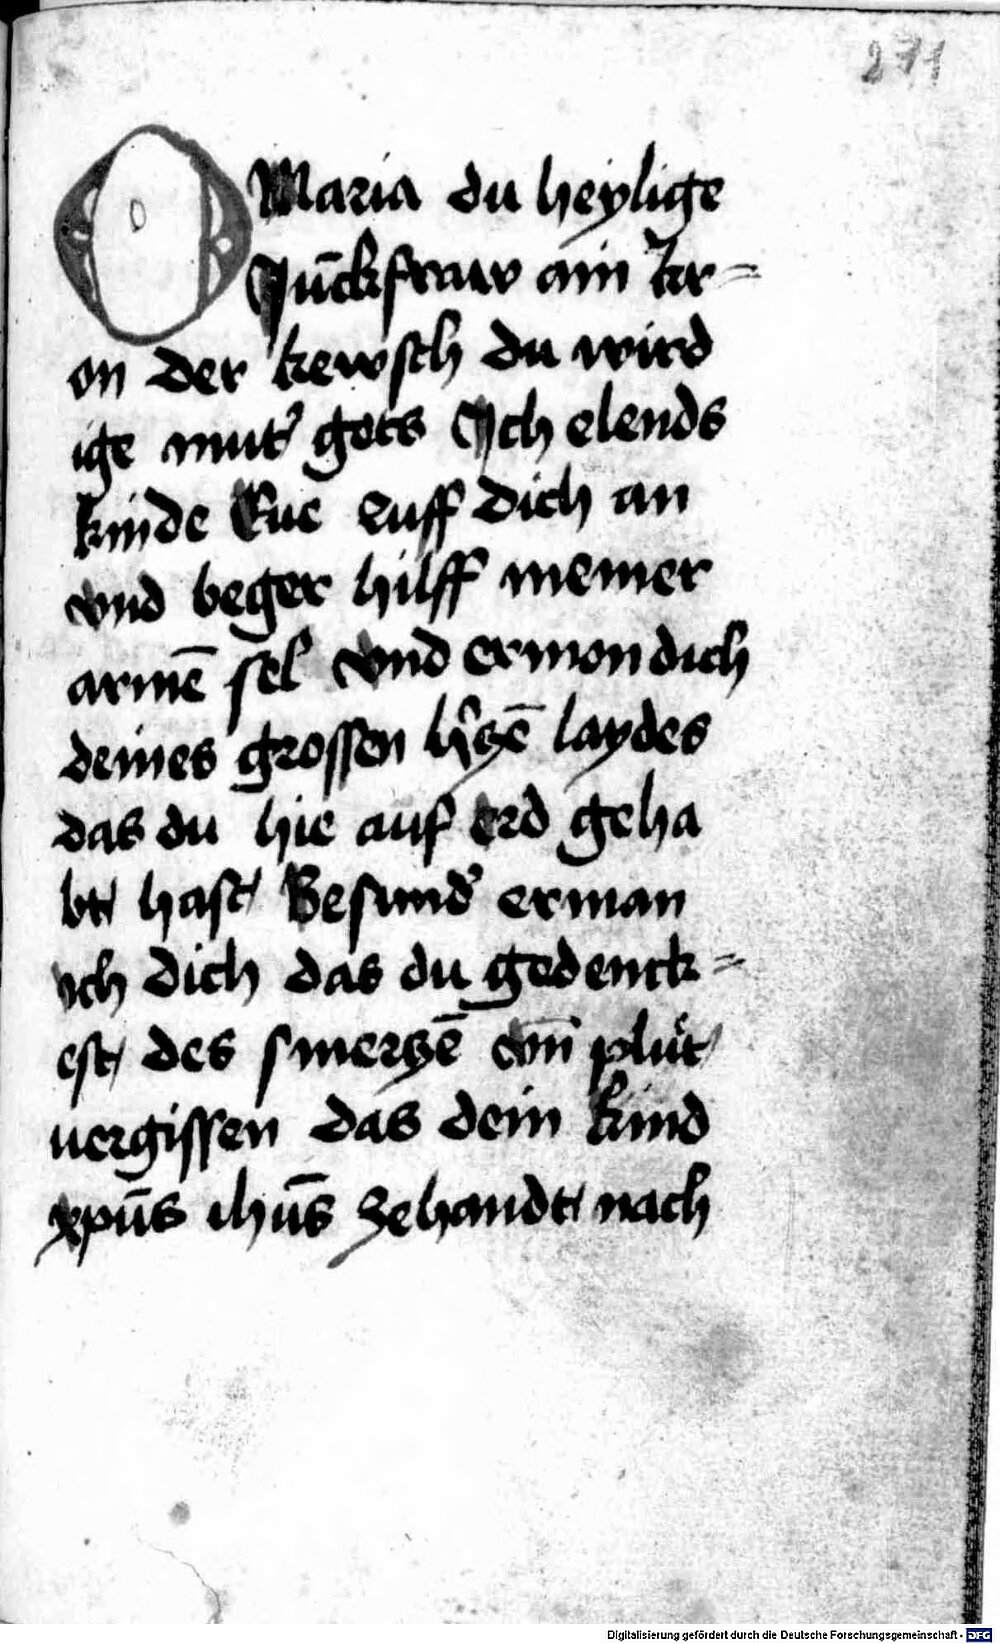 271
O Maria du heylige
Jūckfraw ain kr-
on der kewsch du wird
ige mut' gots Ich elends
kinde Eue Ruff dich an
vnd beger hilff meiner
armē sel vnd ermon dich
deines grossen h'czē laydes
das du hie auf erd geha
bt hast Besund' erman
ich dich das du gedenck-
est des smerczē vn̄ plůt
uergissen das dein kind
xpūs ihūs zehandt nach
Digitalisierung gefördert durch die Deutsche Forschungsgemeinschaft - DFG